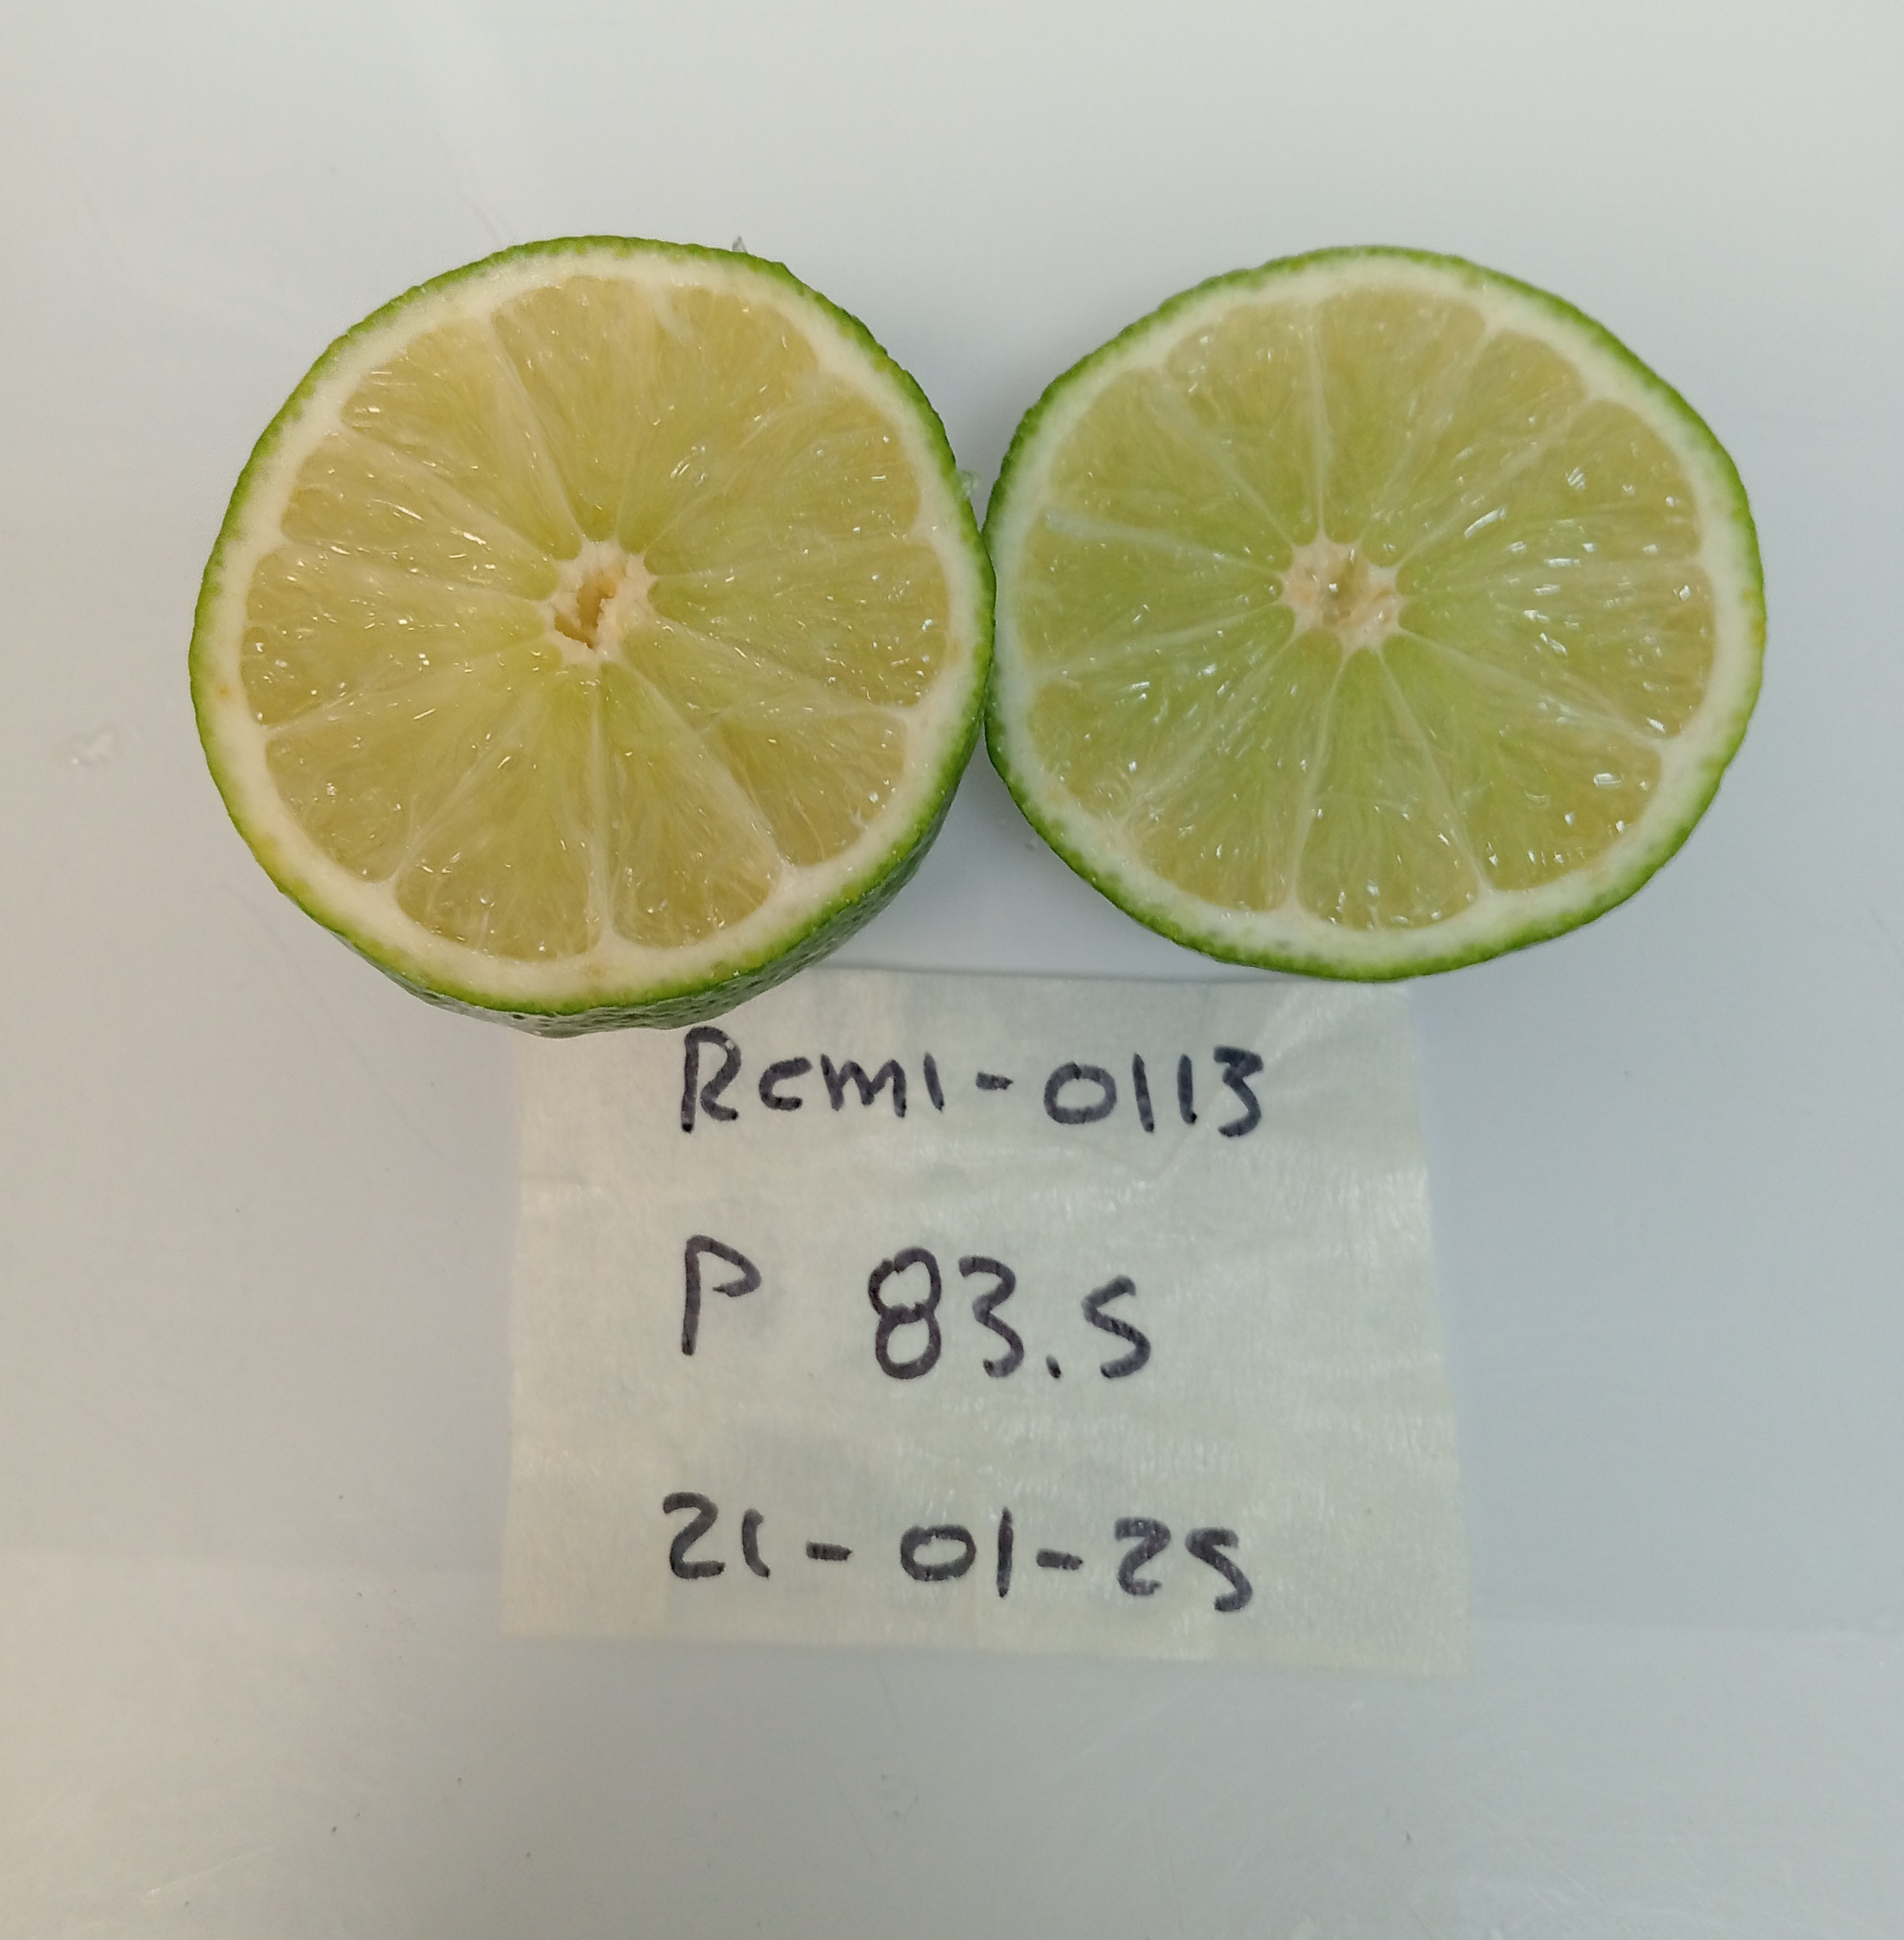 Rcm1-0113
P 83.5
21-01-25